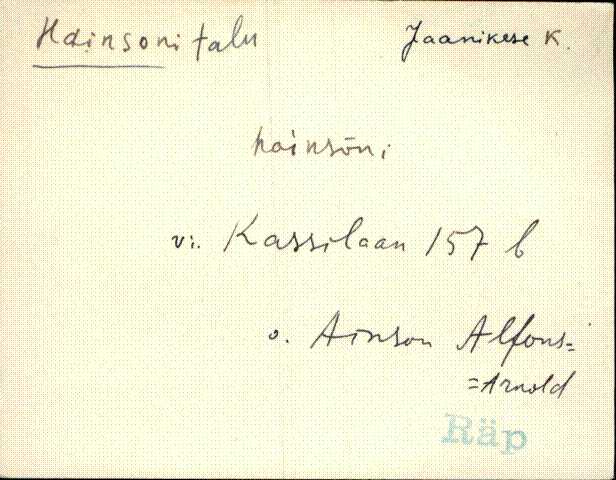 Hainsoni talu Jaanikese K.
hainsoni
vi. Kassilaan 157 b
o. Ainson Alfons=
=Arnold
Räp